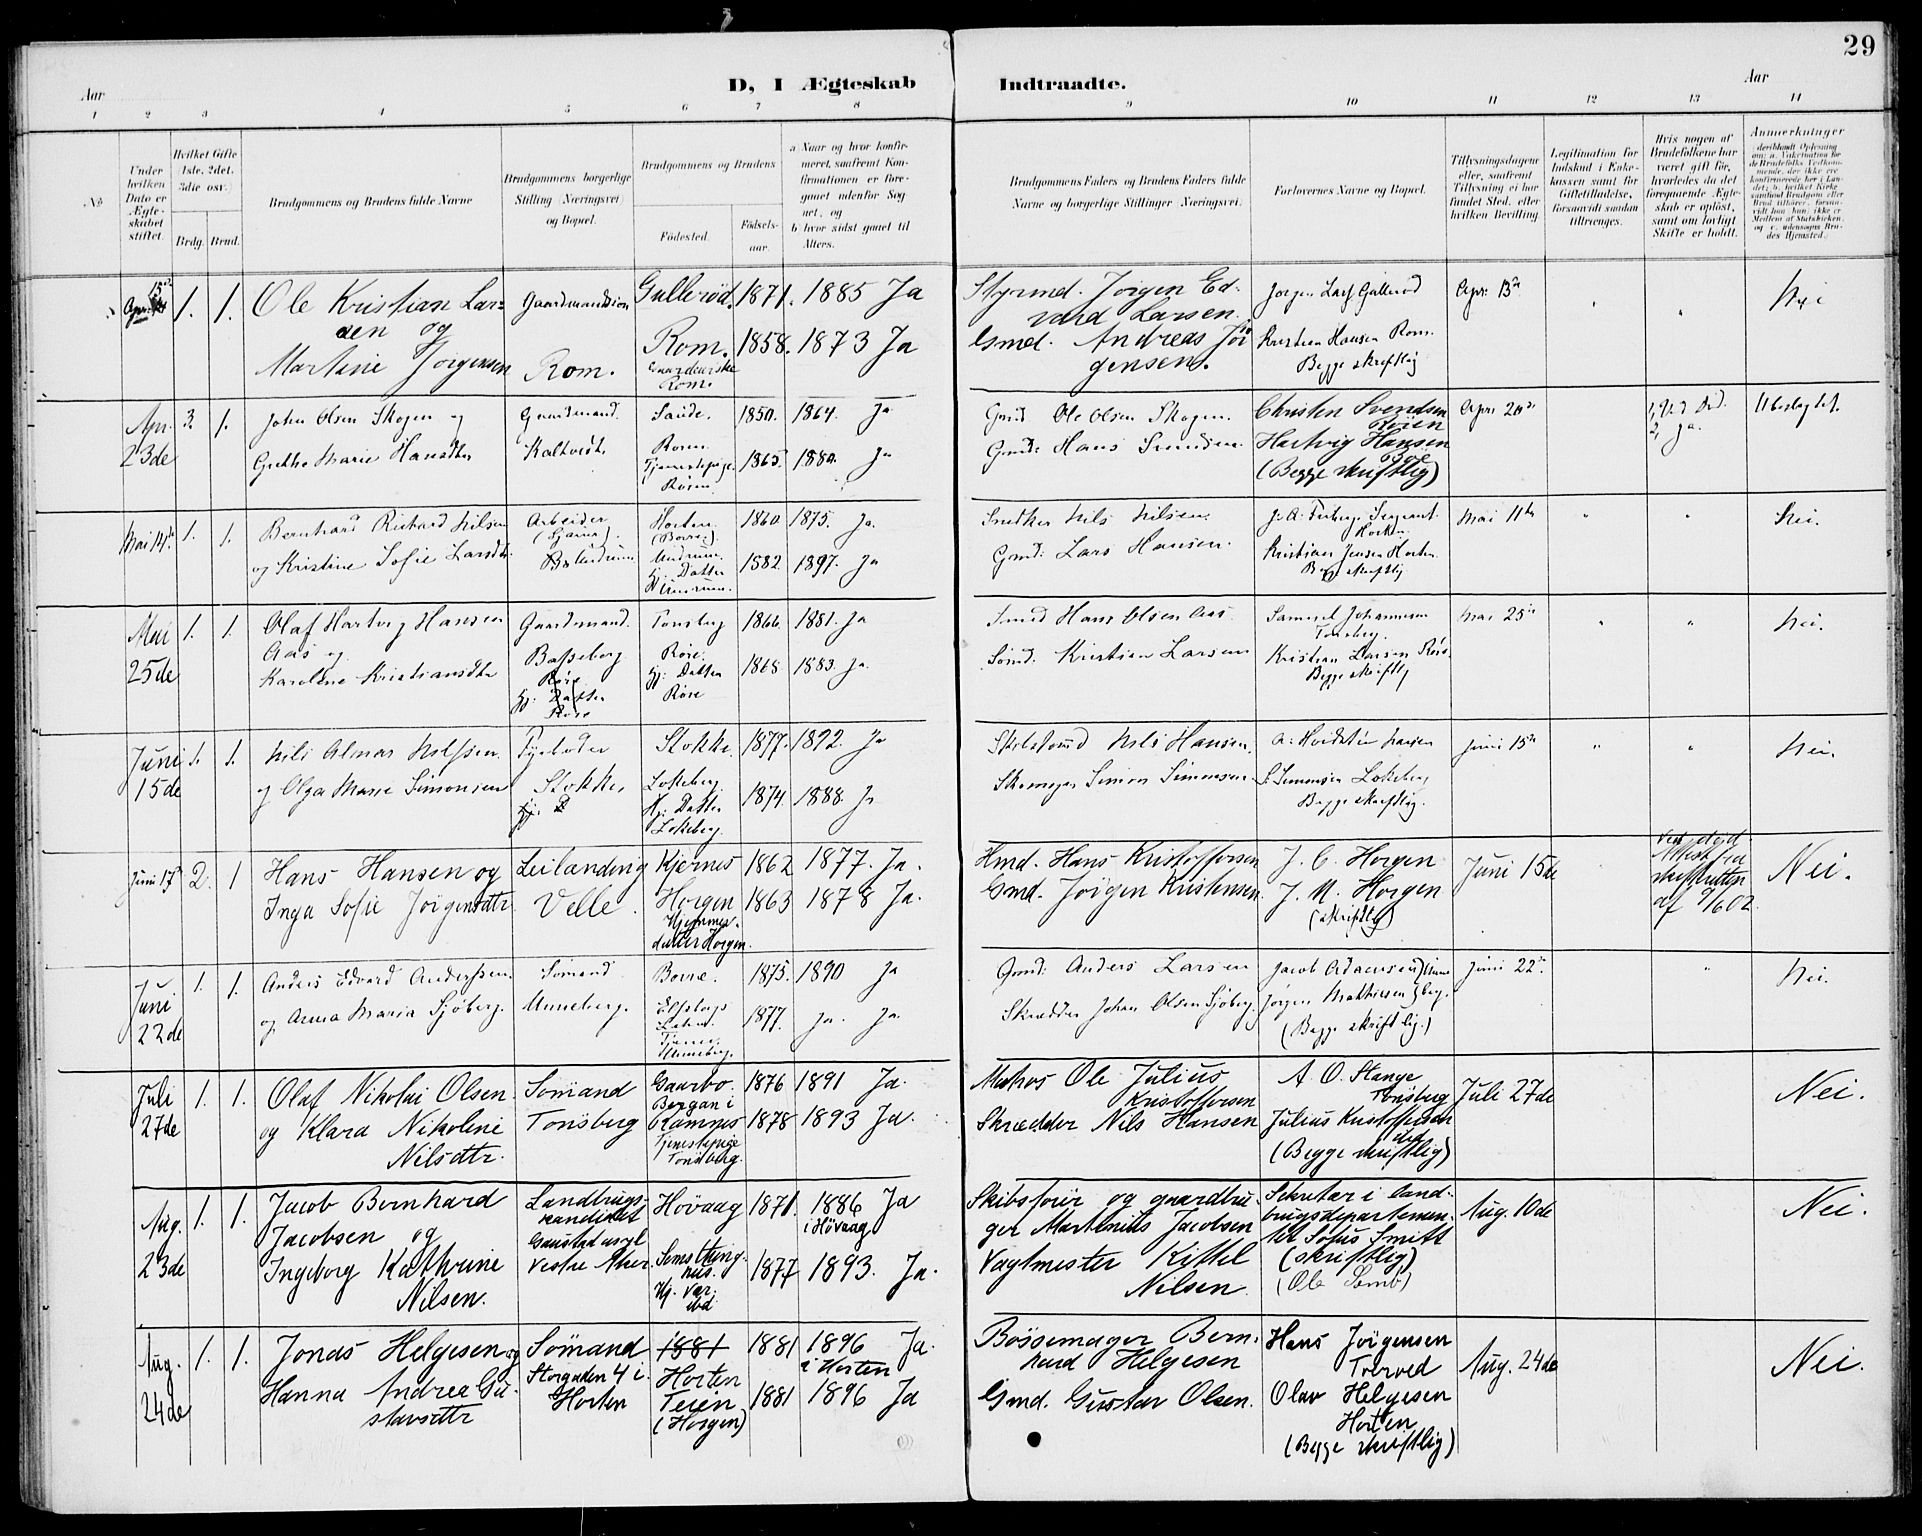 29
D, I Ægteskab Indtraadte.
Aar Aar
1 2 3 4 5 6 7 8 9 10 11 12 13 14
No
Under hvilken Dato er Ægteskabet stiftet.
Hvilket Gifte 1ste, 2det, 3die osv.
Brdg. Brud.
Brudgommens og Brudens fulde Navne
Brudgommens borgerlige Stilling (Næringsvei) og Bopæl.
Brudgommens og Brudens
Fødested. Fødselsaar.
a Naar og hvor konfirmeret, saafremt Konfirmationen er foregaaet udenfor Sognet, og
b hvor sidst gaaet til Alters.
Brudgommens Faders og Brudens Faders fulde Navne og borgerlige Stillinger (Næringsvei).
Forlovernes Navne og Bopæl.
Tillysningsdagene eller, saafremt Tillysning ei har fundet Sted, efter hvilken Bevilling.
Legitimation for Indskud i Enkekassen samt for Giftetilladelse, forsaavidt saadan tiltrænges.
Hvis nogen af Brudefolkene har været gift før, hvorledes da det foregaaende Ægteskab er opløst, samt om lovligt Skifte er holdt.
Anmerkninger
Apr. 15de 1. 1. Ole Kristian Larsen og Gaardmandssøn Gullerød. 1871. 1885 Ja
Martine Jørgensen Rom. Rom. 1858. 1873 Ja
Rom.
Styrmd. Jørgen Edvard Larsen.
Gmd. Andreas Jørgensen.
Jørgen Larsen Gullerød
Kristian Hansen Rom.
Begge skriftlig
Apr. 13de
Nei
Apr. 23de 3. 1. John Olsen Skogen og Gaardmand. Sande. 1850. 1864. Ja
Grethe Marie Hansdtr Kaltvedt Roren 1865. 1880. Ja
Tjenestepige Roren.
Gmd Ole Olsen Skogen.
Gmd: Hans
Christen Svendsen Roren
Hartvig Hansen
(Begge skriftlig)
Apr. 20de
1, Ved Død.
2, ja.
Ubeslægtet.
Mai 14de 1. 1. Bernhard Richard Nilsen Arbeider Horten (Borre) 1860. 1875. Ja
og Kristine Sofie Larsdtr. Undrum 1582. 1897. Ja
Hj. Datter Undrum.
Snedker Nils Nilsen.
Gmd: Lars Hansen.
Sergeant Horten
Kristian Jensen Horten
Begge skriftlig
Mai 11te
Nei.
Mai 25de 1. 1. Olaf Hartvig Hansen Gaardmand. Tønsberg 1866. 1881. Ja
Aas og Basseberg Røre.
Karoline Kristiansdtr Hj. Datter Røre 1868 1883. Ja.
Røre Hj. Datter Røre
Smed Hans Olsen Aas.
Sømd: Kristian Larsen
Samuel Johannesen Tønsberg.
Kristian Larsen Røre.
Begge skriftlig
Mai 25de
Nei.
Juni 15de 1. 1. Nils Almar Nilssen Stokke 1877. 1892. Ja
og Olga Marie Simonsen Stokke, Lokeberg 1874. 1888. Ja
Hj. Datter Lokeberg.
Nils Hansen.
Skomager Simon Simonsen
S. Simonsen Lokeberg
Begge skriftlig.
Juni 15de
Nei.
Juni 17de 2. 1 Hans Hansen og Leilænding Kjernes 1862 1877. Ja.
Inga Sofie Jørgensdtr. Velle. Horgen 1863 1878 Ja.
Hjemmedatter Horgen.
Hmd. Hans Kristoffersen
Gmd. Jørgen Kristensen.
J. C. Horgen
J. M. Horgen
(skriftlig)
Juni 15de
Ved død
Attest fra skifteretten af 9/6 02.
Nei.
Juni 22de 1. 1. Anders Edvard Anderssen Sømand Borre. 1875. 1890 Ja
og Anna Maria Sjøberg. Unneberg. Elfsborgs 1877. ja. Ja.
Tjener Unneberg.
Gmd: Anders Larsen
Skrædder Johan Olsen Sjøberg.
Jørgen Mathiesen
(Begge skriftlig.)
Juni 22de
Nei.
Juli 27de 1. 1. Olaf Nikolai Olsen Sømand Gaarbo. 1876 1891 Ja.
og Klara Nikoline Nilsdtr. Tønsberg Bergan i Ramnes 1878 1893 Ja.
Tjenestepige Tønsberg.
Matros Ole Julius Kristoffersen
Skrædder Nils Hansen
A. O. Stange Tønsberg
Julius Kristoffersen
(Begge skriftlig)
Juli 27de
Nei.
Aug. 23de 1. 1. Jacob Bernhard Jacobsen og Landbrugskandidat Høvaag 1871. 1886 Ja
i Høvaag
Gaustad asyl Vestre Aker.
Ingeborg Kathrine Nilsen. Hj. Vær. ibd. 1877 1893. Ja.
Skibsfører og gaardbruger Martinius Jacobsen
Vagtmester Kittel Nilsen
Sekretær i Landbrugsdepartementet Sofus Smitt
(skriftlig)
(Ole Semb)
Aug. 10de
Nei.
Aug. 24de 1. 1. Jonas Helgesen og Sømand 1881 1881 1896 Ja.
Storgaden 4 i Horten Horten i Horten
Hanna Andrea Gustavsdtr Teien (Horgen) 1881 1896 Ja
Bøssemager Bernhard Helgesen
Gmd. Gustav Olsen.
Hans Jørgensen
Olav Helgesen Horten
(Begge skriftlig)
Aug. 24de
Nei.